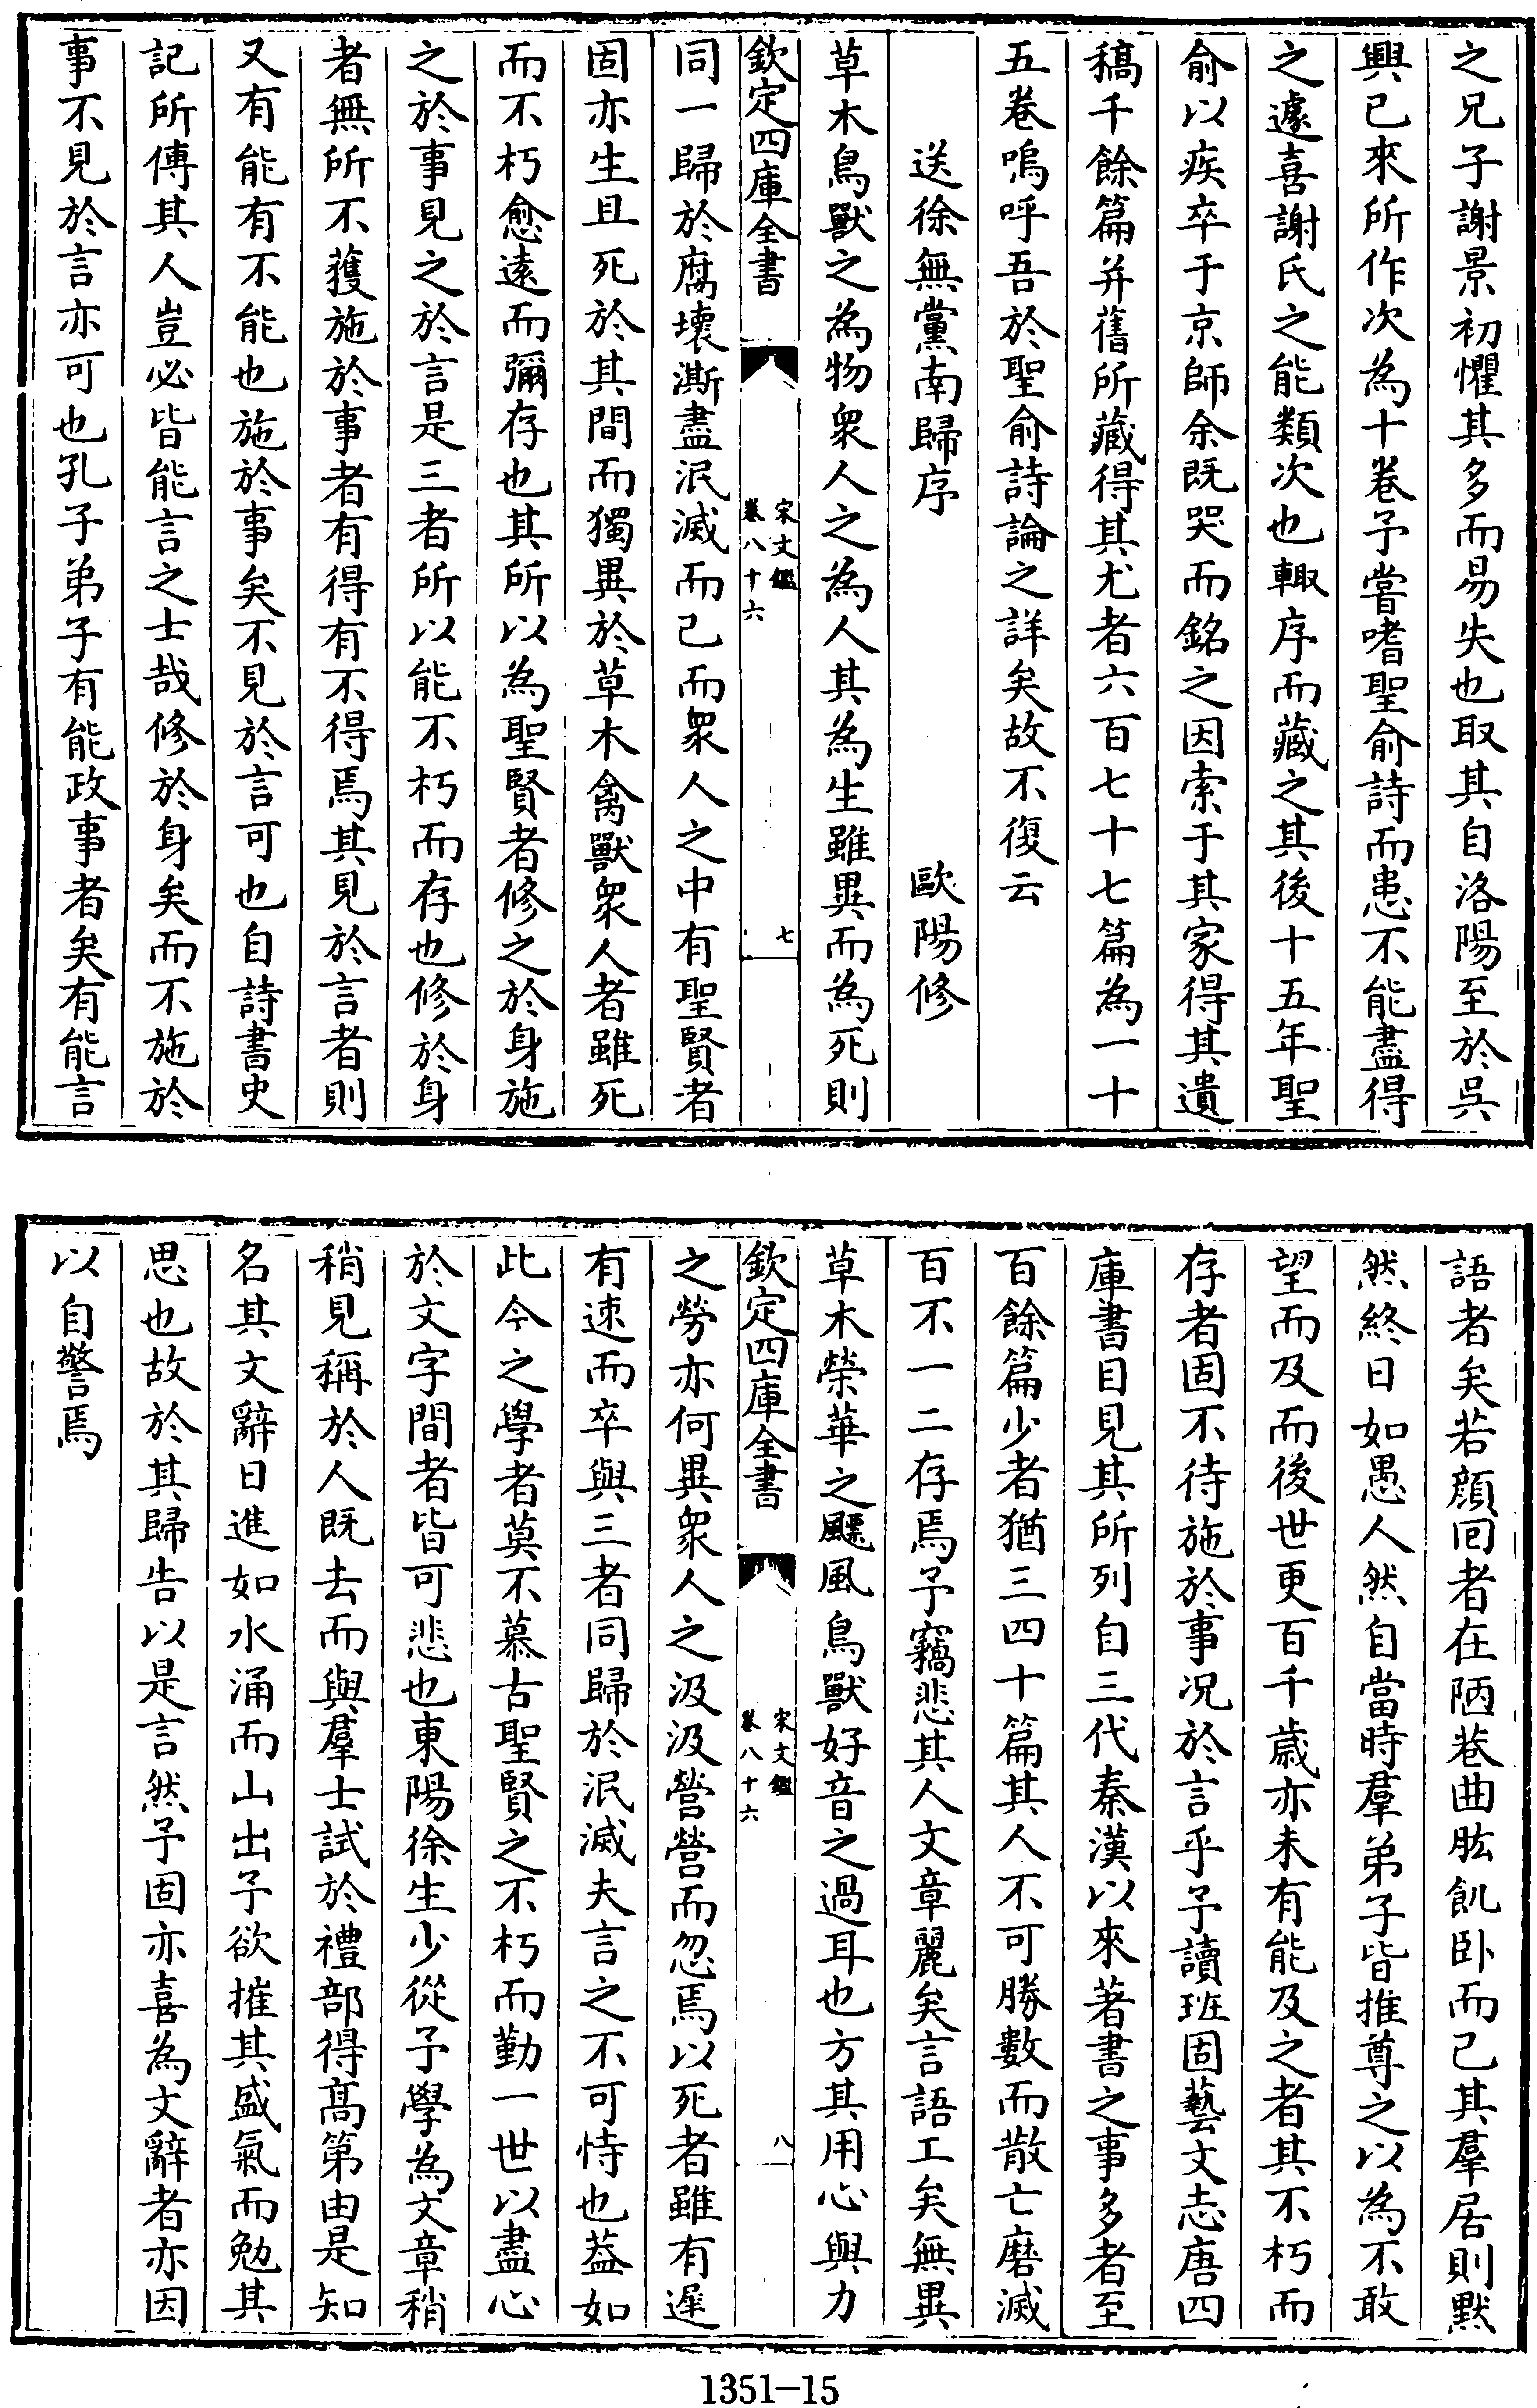 之兄子謝景初懼其多而易失也取其自洛陽至於吳
興已來所作次為十卷予嘗嗜聖俞詩而患不能盡得
之遽喜謝氏之能類次也輙序而藏之其後十五年聖
俞以疾卒于京師余既哭而銘之因索于其家得其遺
稿千餘篇并舊所藏得其尤者六百七十七篇為一十
五卷嗚呼吾於聖俞詩論之詳矣故不復云
送徐無黨南歸序　歐陽修
草木鳥獸之為物衆人之為人其為生雖異而為死則
欽定四庫全書
宋文鑑
卷八十六
七
同一歸於腐壞澌盡泯滅而已而衆人之中有聖賢者
固亦生且死於其間而獨異於草木禽獸衆人者雖死
而不朽愈遠而彌存也其所以為聖賢者修之於身施
之於事見之於言是三者所以能不朽而存也修於身
者無所不獲施於事者有得有不得焉其見於言者則
又有能有不能也施於事矣不見於言可也自詩書史
記所傳其人豈必皆能言之士哉修於身矣而不施於
事不見於言亦可也孔子弟子有能政事者矣有能言
語者矣若顔回者在陋巷曲肱飢卧而已其羣居則默
然終日如愚人然自當時羣弟子皆推尊之以為不敢
望而及而後世更百千歲亦未有能及之者其不朽而
存者固不待施於事況於言乎予讀班固藝文志唐四
庫書目見其所列自三代秦漢以來著書之事多者至
百餘篇少者猶三四十篇其人不可勝數而散亡磨滅
百不一二存焉予竊悲其人文章麗矣言語工矣無異
草木榮華之飄風鳥獸好音之過耳也方其用心與力
欽定四庫全書
宋文鑑
卷八十六
八
之勞亦何異衆人之汲汲營營而忽焉以死者雖有遲
有速而卒與三者同歸於泯滅夫言之不可恃也葢如
此今之學者莫不慕古聖賢之不朽而勤一世以盡心
於文字間者皆可悲也東陽徐生少從予學為文章稍
稍見稱於人既去而與羣士試於禮部得髙第由是知
名其文辭日進如水涌而山出予欲摧其盛氣而勉其
思也故於其歸告以是言然予固亦喜為文辭者亦因
以自警焉
1351-15